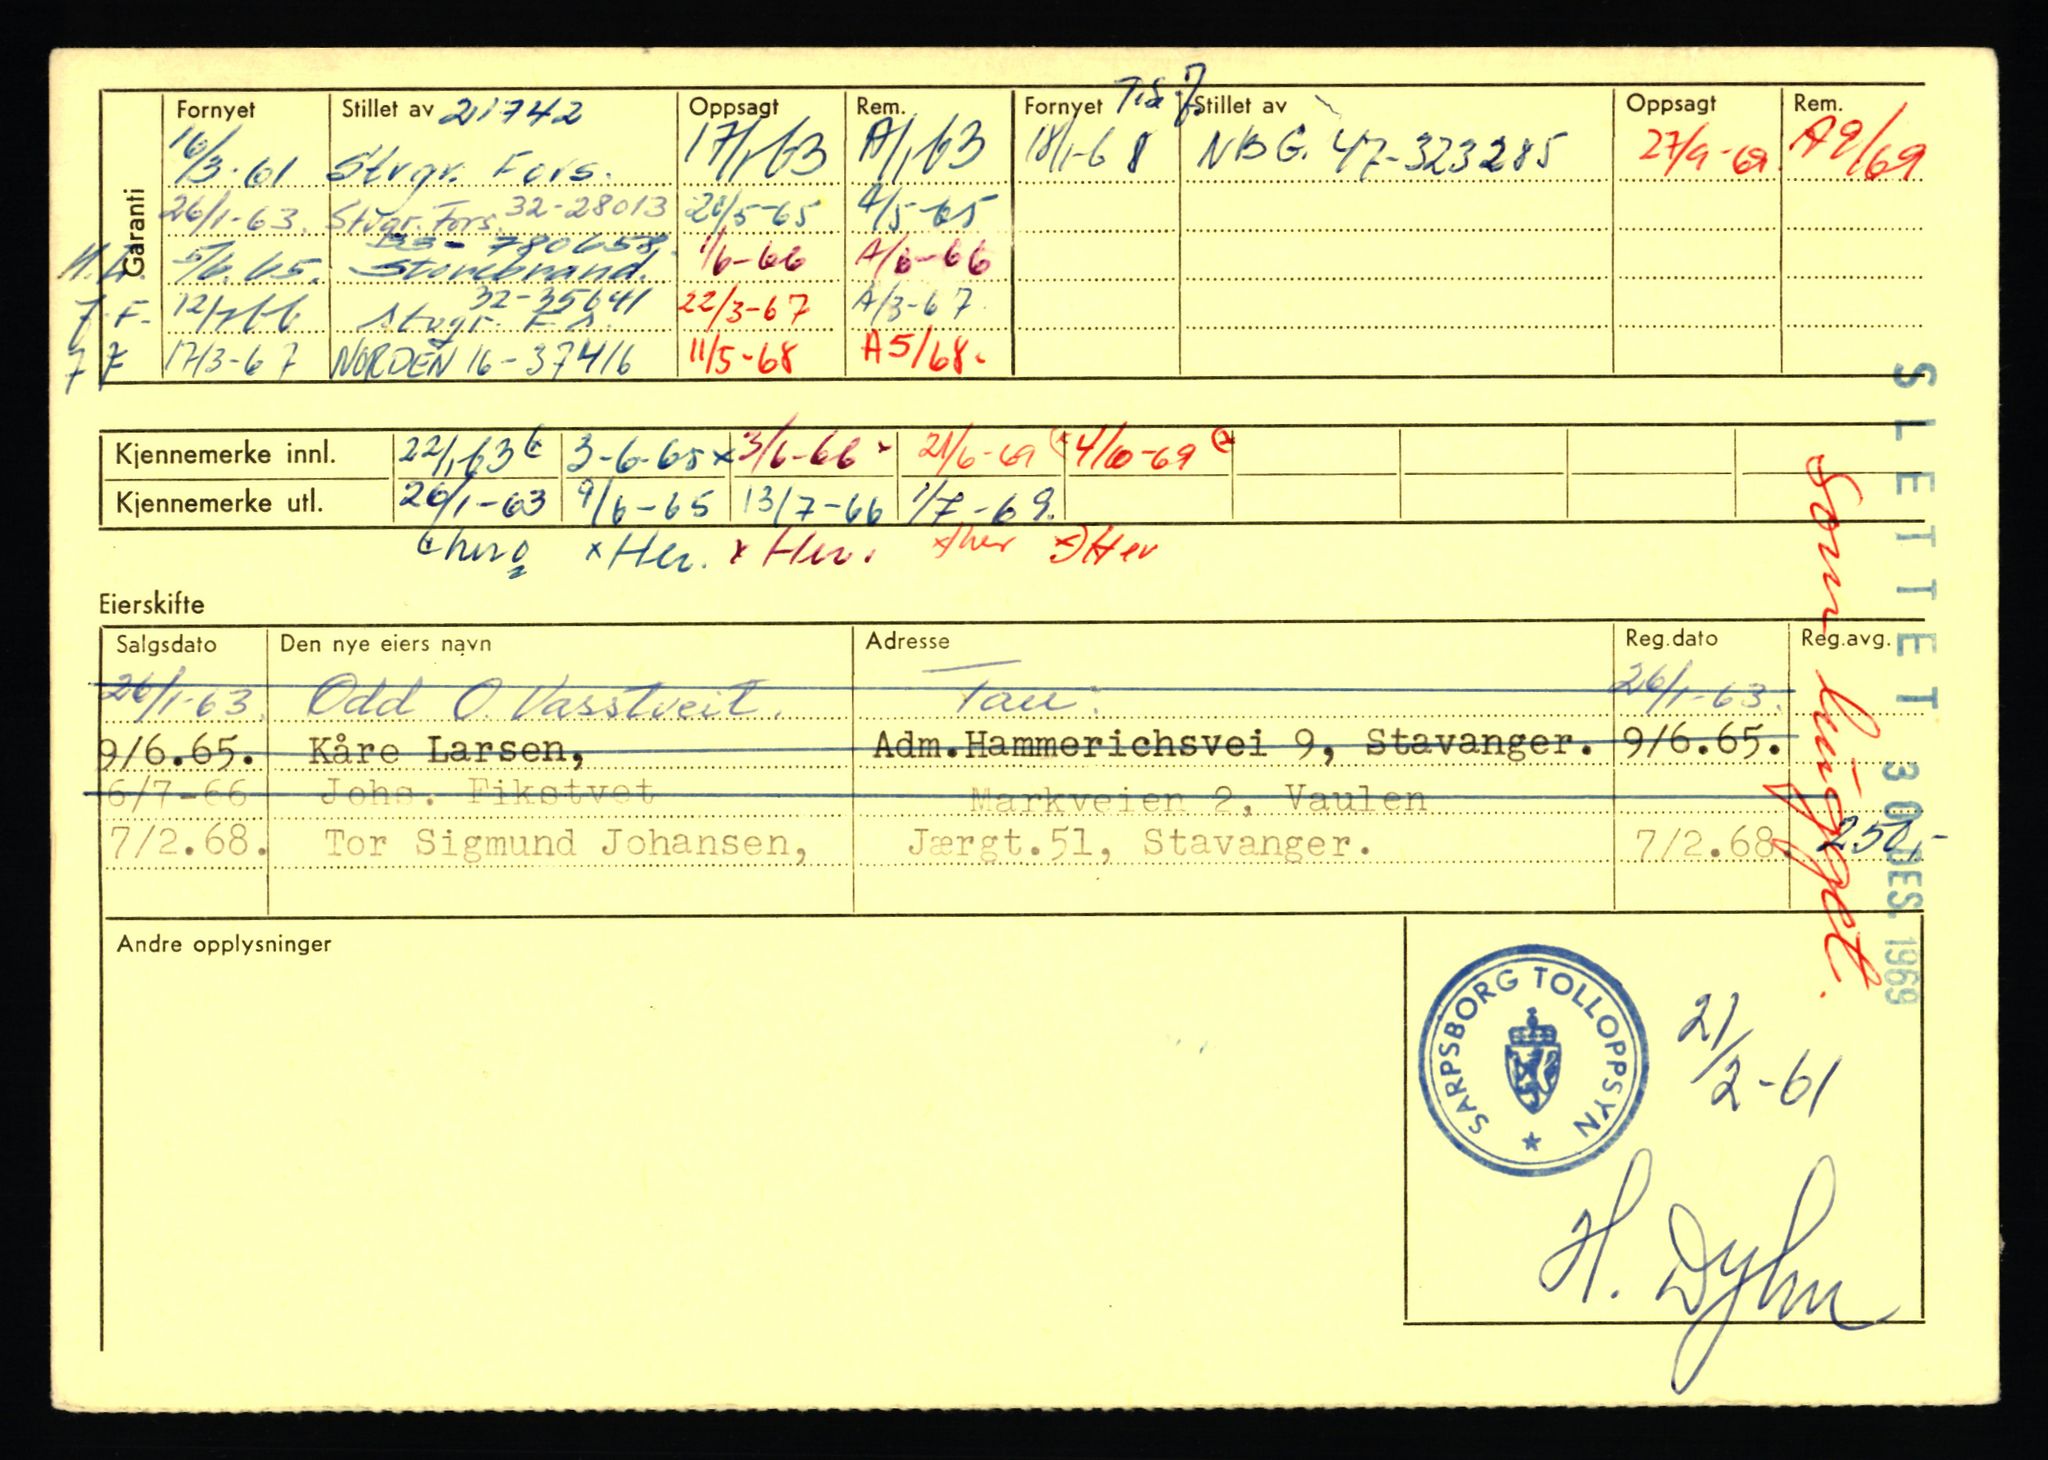 Garanti
Fornyet Stillet av 21742 Oppsagt Rem. Fornyet Stillet av Oppsagt Rem.
16/3-61 Stvgr. Fors. 17/1-63 A/1-63 18/1-68 NBG. 47-323285 27/9-69 A9/69
26/1-63. Stvgr. Fors. 32-28013 21/5-65 A/5-65
780658
5/6.65. Storebrand. 1/6-66 A/6-66
32-35641
7.F. 12/7-66 Stvgr. F.s. 22/3-67 A/3-67.
7 F 17/3-67 NORDEN 16-37416 11/5-68 A5/68.
Kjennemerke innl. 22/1-63 3-6-65 x 3/6-66 x 21/6-69 4/10-69
Kjennemerke utl. 26/1-63 9/6-65 13/7-66 1/7-69.
x Her. x Her. x) her x) Her
Eierskifte
Salgsdato Den nye eiers navn Adresse Reg.dato Reg.avg.
26/1-63. Odd O. Vasstveit. Tau. 26/1-63.
9/6.65. Kåre Larsen, Adm.Hammerichsvei 9, Stavanger. 9/6.65.
6/7-66 Johs. Fikstvet Markveien 2, Vaulen
7/2.68. Tor Sigmund Johansen, Jærgt.51, Stavanger. 7/2.68. 250,-
Andre opplysninger
SARPSBORG TOLLOPPSYN
21/2-61
H. Dyhn
SLETTET 30 DES. 1969
Som hugget.